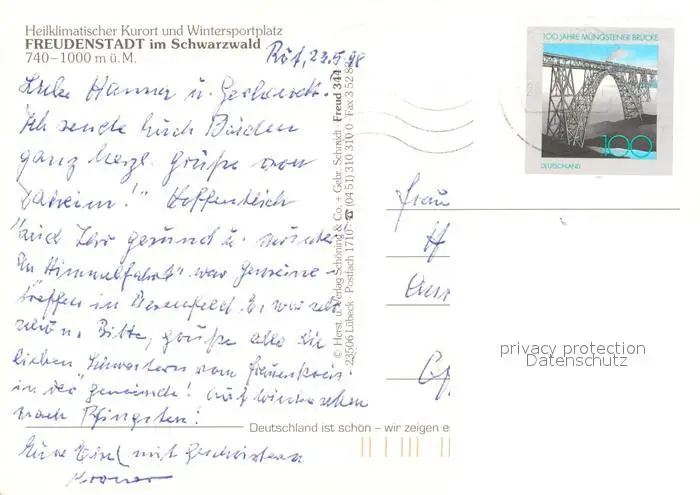 Heilklimatischer Kurort und Wintersportplatz
FREUDENSTADT im Schwarzwald
740–1000 m ü.M.
Röt, 23.5.98
Liebe Hanna u.
Ich sende Euch Beiden
ganz herzl. Grüße von
daheim!" Hoffentlich
seid Ihr gesund u. munter
"In Himmelfahrt" war Gemeinde-
treffen in Besenfeld. Es war sehr
schön. Bitte, grüße alle die
lieben Schwestern vom Frauenkreis
in der Gemeinde! Auf Wiedersehen
nach Pfingsten!
Eure mit Geschwistern
© Herst. u. Verlag Schöning & Co. + Gebr. Schmidt Freud 344
23506 Lübeck · Postfach 1710 ☎ (0451) 310 310 Fax 3 52 82
100 JAHRE MÜNGSTENER BRÜCKE
100
DEUTSCHLAND
Frau
H
privacy protection
Datenschutz
Deutschland ist schön – wir zeigen e